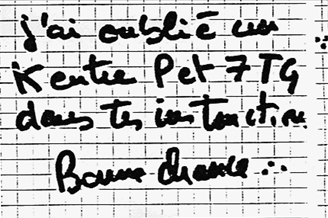 j'ai oublié un
K entre P et 7 TG
dans tes instructions
Bonne chance ∴